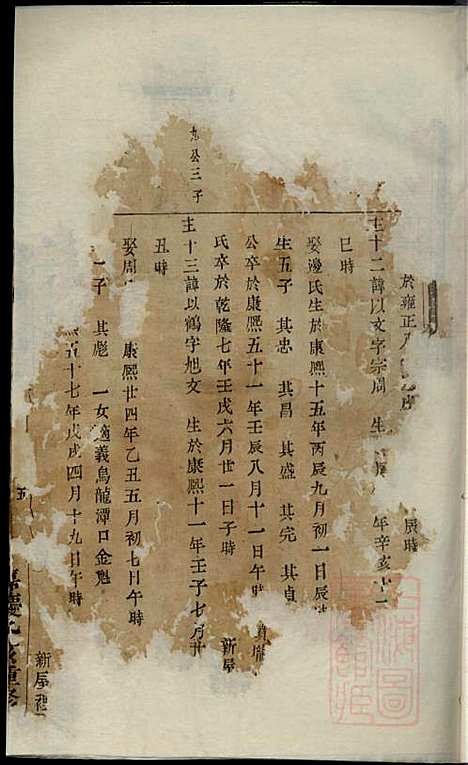 於雍正
辰時
圭十二諱以文字宗周 生
年辛亥十二
巳時
娶邊氏生於康熙十五年丙辰九月初一日辰
生五子 其忠 其昌 其盛 其完 其貞
公卒於康熙五十一年壬辰八月十一日午時
氏卒於乾隆七年壬戌六月廿一日子時
新屋
公三子
圭十三諱以鶴字旭文 生於康熙十一年壬子七月廿
丑時
娶周
康熙廿四年乙丑五月初七日午時
一子 其彪 一女適義烏龍潭口金魁
五十七年戊戌四月十九日午時
五
新屋